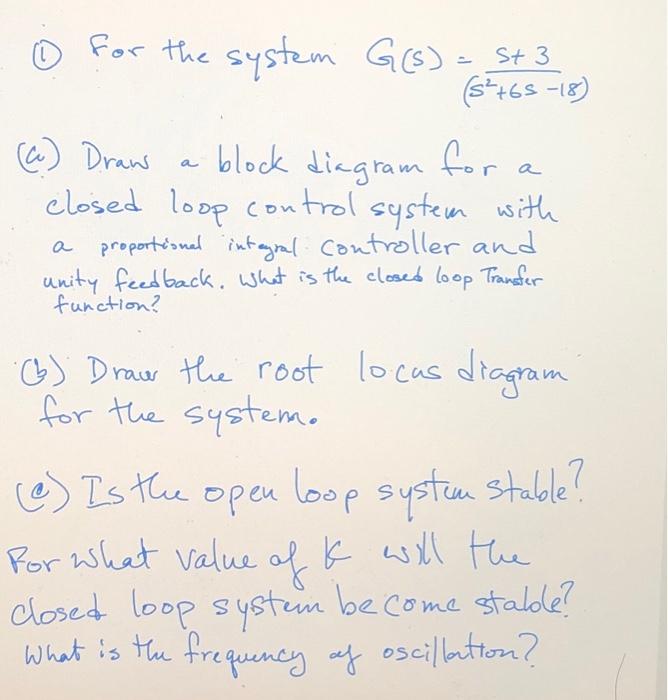 ① For the system G(s) = s+3
(s²+6s -18)
(a) Draw a block diagram for a
closed loop control system with
a proportional integral controller and
unity feedback. What is the closed loop Transfer
function?
(b) Draw the root locus diagram
for the system.
(c) Is the open loop system stable?
For what value of K will the
closed loop system become stable?
What is the frequency of oscillation?